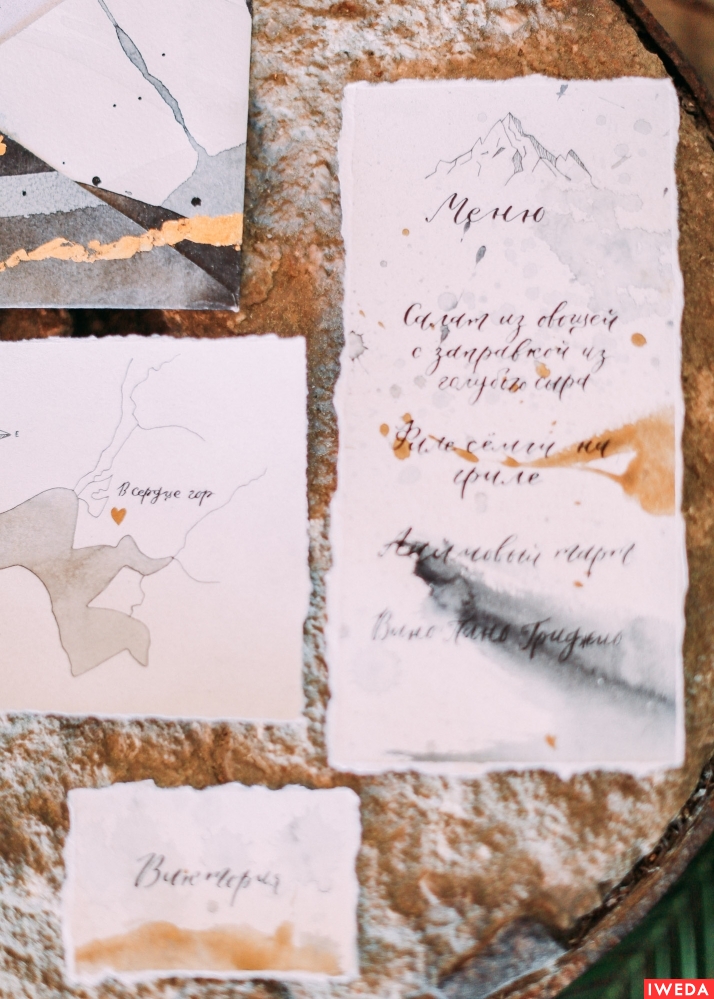 Меню
Салат из овощей
с заправкой из
голубого сыра
Филе сёмги на
гриле
Лимонный тарт
Вино Пино Гриджио
E
В сердце гор
Виктория
IWEDA